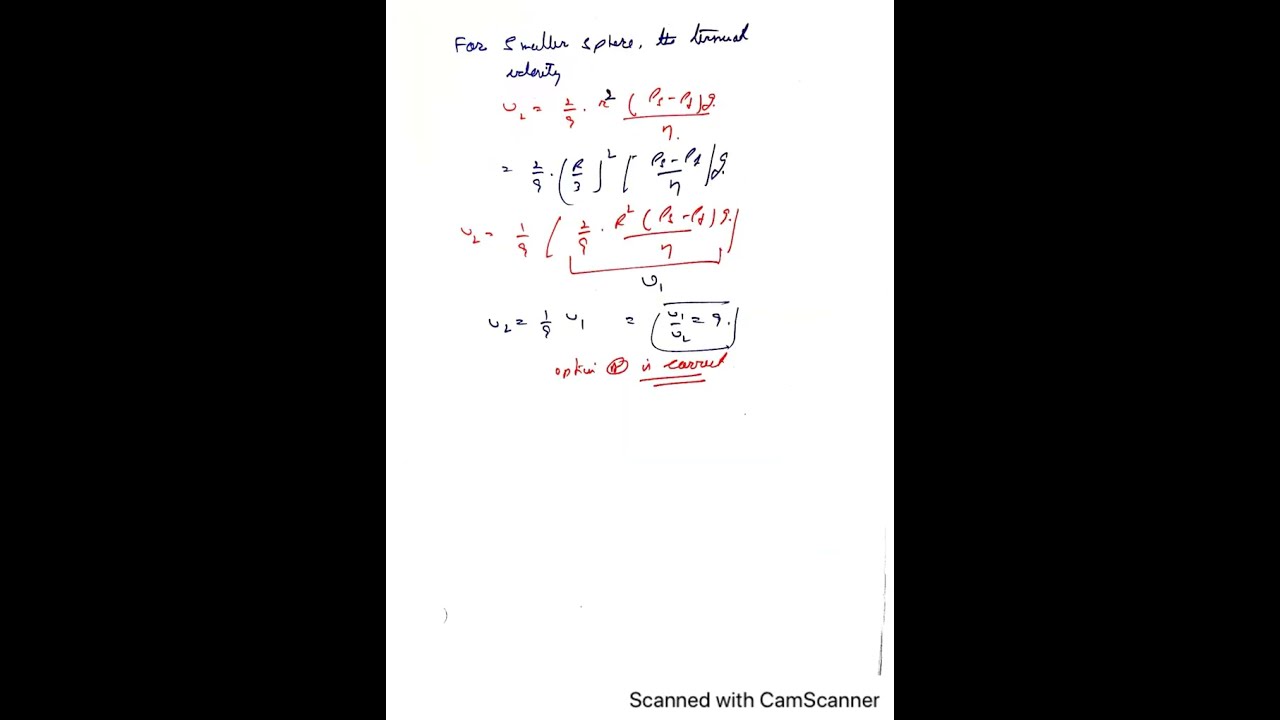 For smaller sphere, the terminal
velocity
υ₂ = 2/9 · r² (ρs – ρf)g / η.
= 2/9 · (R/3)² [ρs – ρf / η] g
υ₂ = 1/9 [2/9 · R² (ρs – ρf) g. / η]
υ₁
υ₂ = 1/9 υ₁ = (υ₁/υ₂ = 9.)
option is correct
Scanned with CamScanner